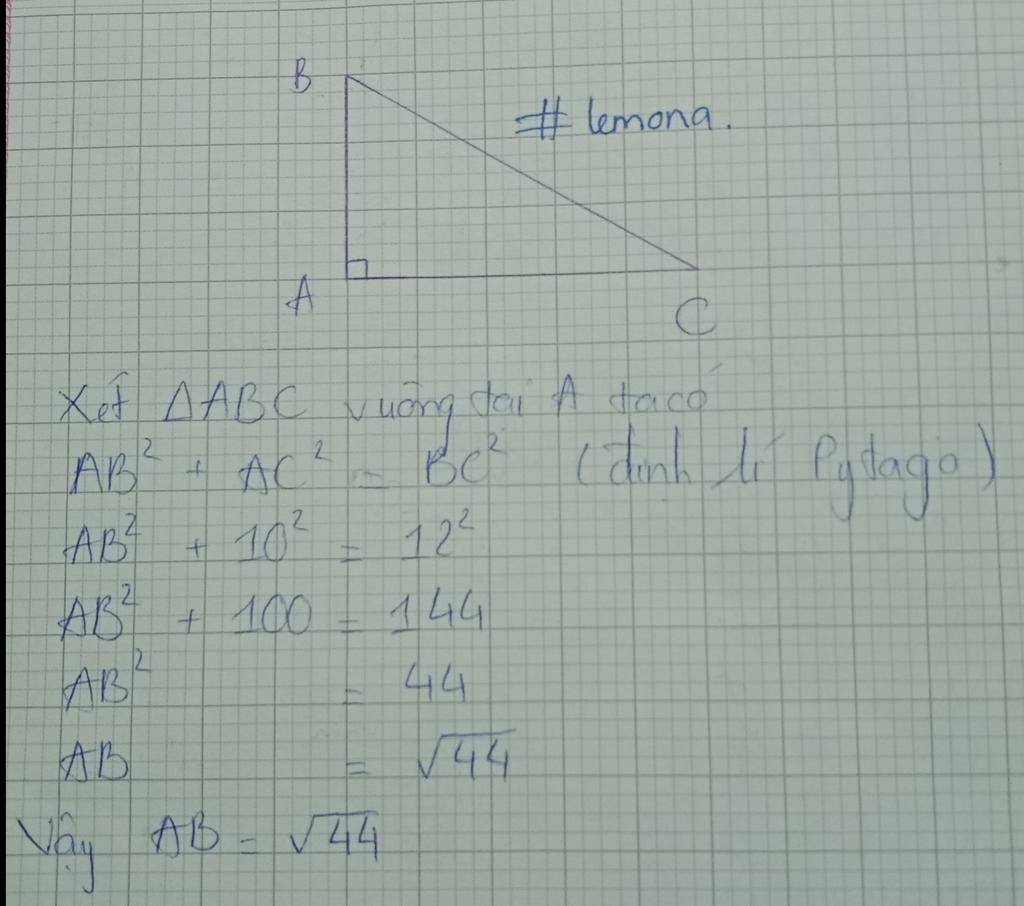 B
# lemona.
A
C
Xét ΔABC vuông tại A ta có
AB² + AC² = BC² (định lí Pytago)
AB² + 10² = 12²
AB² + 100 = 144
AB² = 44
AB = √44
Vậy AB = √44